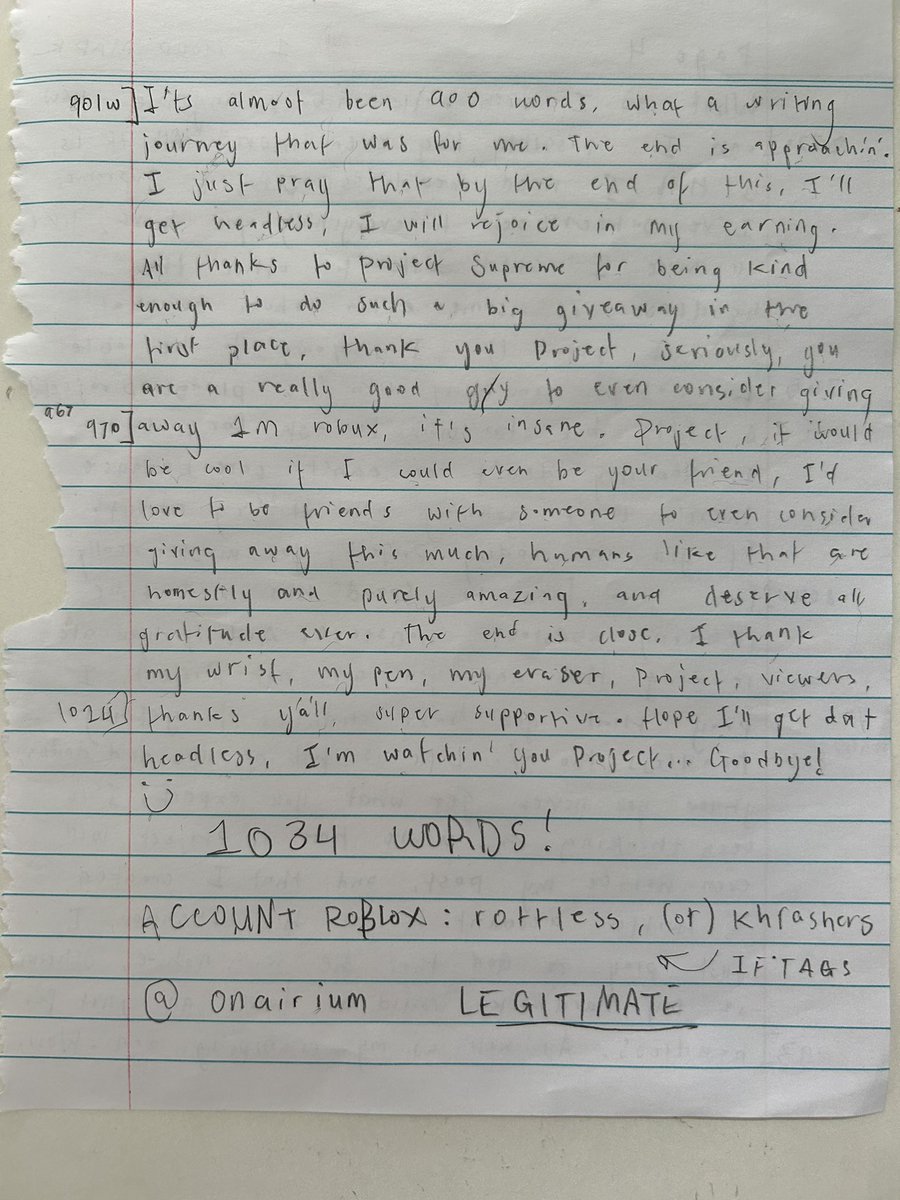 901w] I'ts almost been 900 words, what a writing
journey that was for me. The end is approachin'.
I just pray that by the end of this, I'll
get headless, I will rejoice in my earning.
All thanks to Project Supreme for being kind
enough to do such a big giveaway in the
first place, thank you Project, seriously, you
are a really good guy to even consider giving
967
970] away 1M robux, it's insane. Project, it would
be cool if I could even be your friend, I'd
love to be friends with someone to even consider
giving away this much, humans like that are
honestly and purely amazing, and deserve all
gratitude ever. The end is close. I thank
my wrist, my pen, my eraser, Project, viewers,
1024] thanks y'all, super supportive. Hope I'll get dat
headless, I'm watchin' you Project... Goodbye!
:)
1034 WORDS!
ACCOUNT ROBLOX: rottless, (or) Khrashers
IF TAGS
@ onairium LEGITIMATE